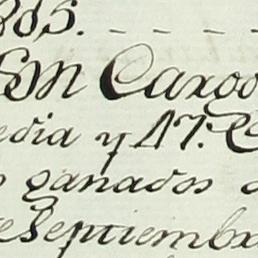 805. - - - -
SM Cargo
edia y 17. R
s ganados d
eSeptiembr